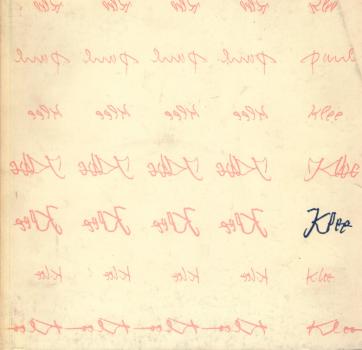 paul paul paul paul paul
Klee Klee Klee Klee Klee
Klee Klee Klee Klee Klee
Klee Klee Klee Klee Klee
Klee Klee Klee Klee Klee
Klee Klee Klee Klee Klee